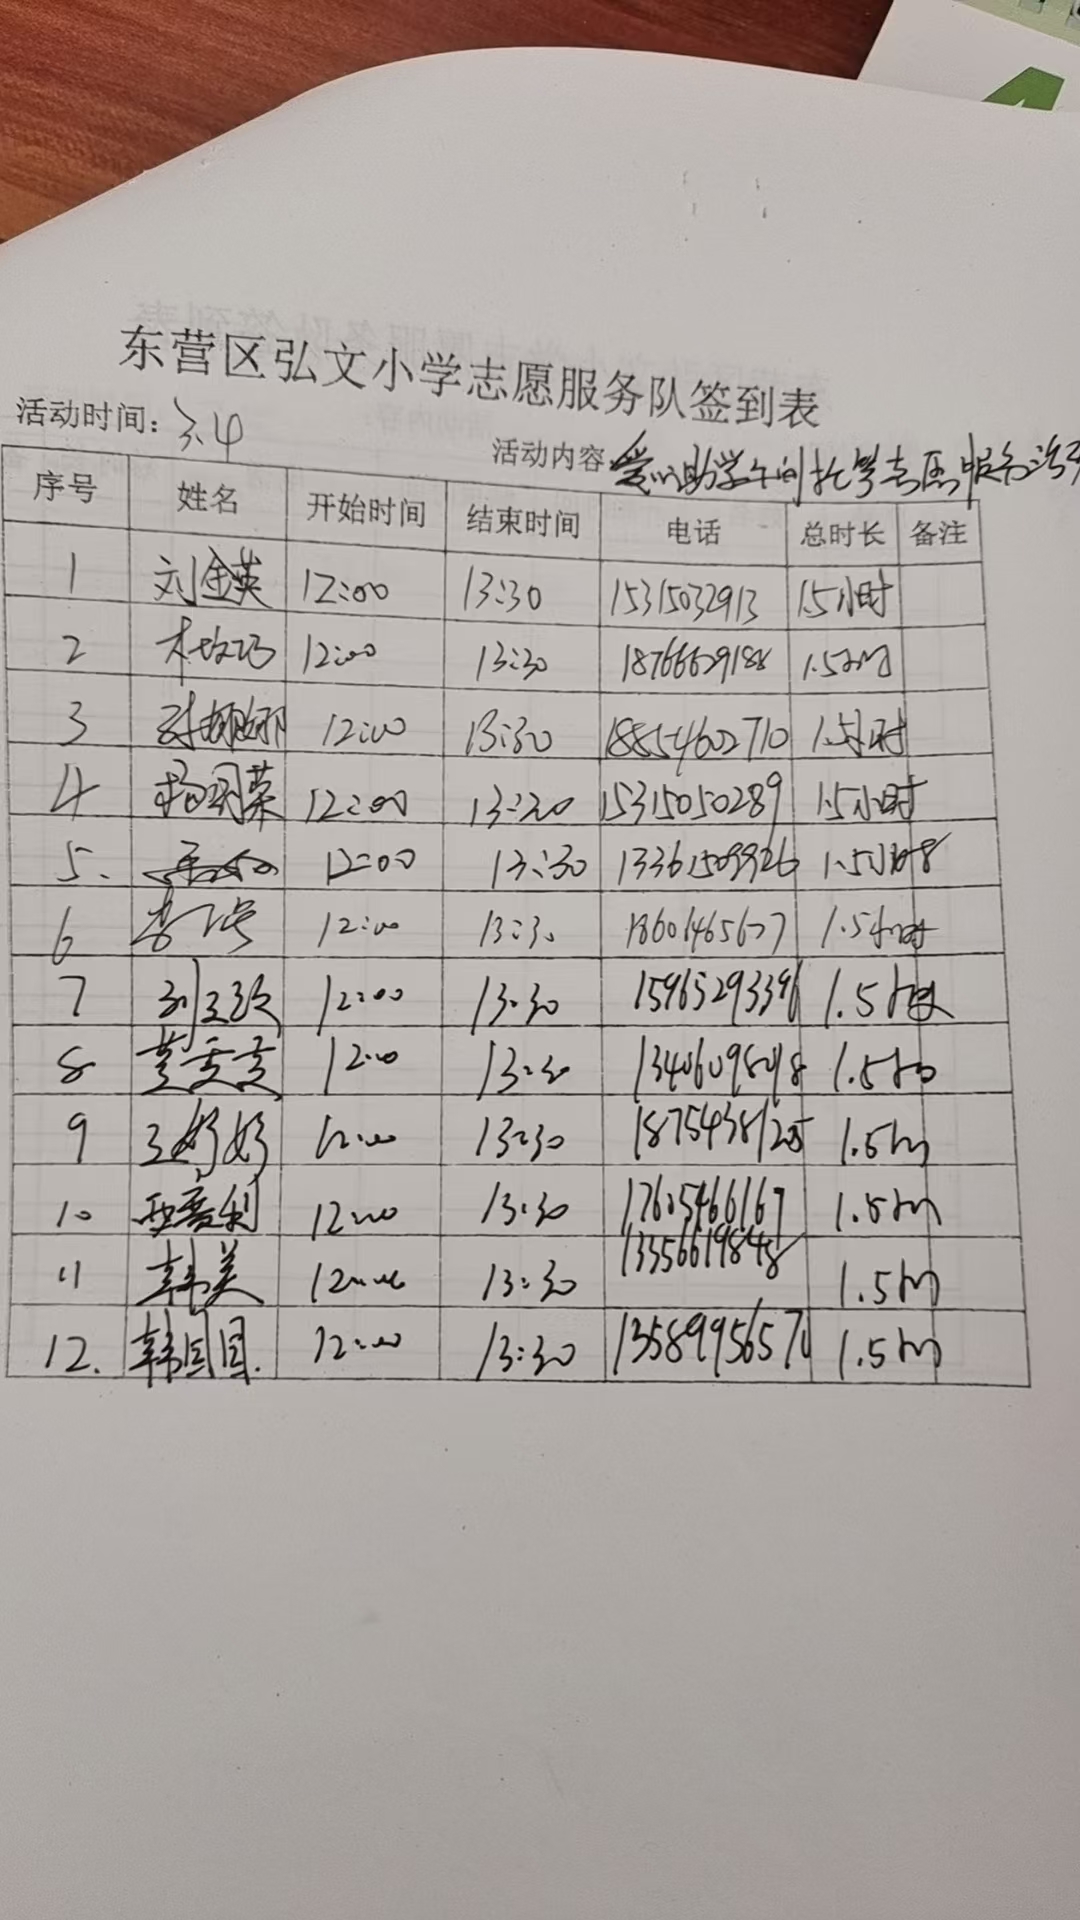 东营区弘文小学志愿服务队签到表
活动时间: 3.4 活动内容 爱心助学午间托管志愿服务活动
序号 姓名 开始时间 结束时间 电话 总时长 备注
1 刘金英 12:00 13:30 15315032913 1.5小时
2 12:00 13:30 18766629188 1.5小时
3 12:00 13:30 18854602710 1.5小时
4 杨月荣 12:00 13:30 15315050289 1.5小时
5. 12:00 13:30 13361509926 1.5小时
6 李 12:00 13:30 18601465677 1.5小时
7 12:00 13:30 15965293396 1.5小时
8 12:00 13:30 1.5小时
9 王婷婷 12:00 13:30 1.5小时
10 12:00 13:30 17605466167 1.5小时
11 韩美 12:00 13:30 13356619848 1.5小时
12. 韩国国. 12:00 13:30 1.5小时